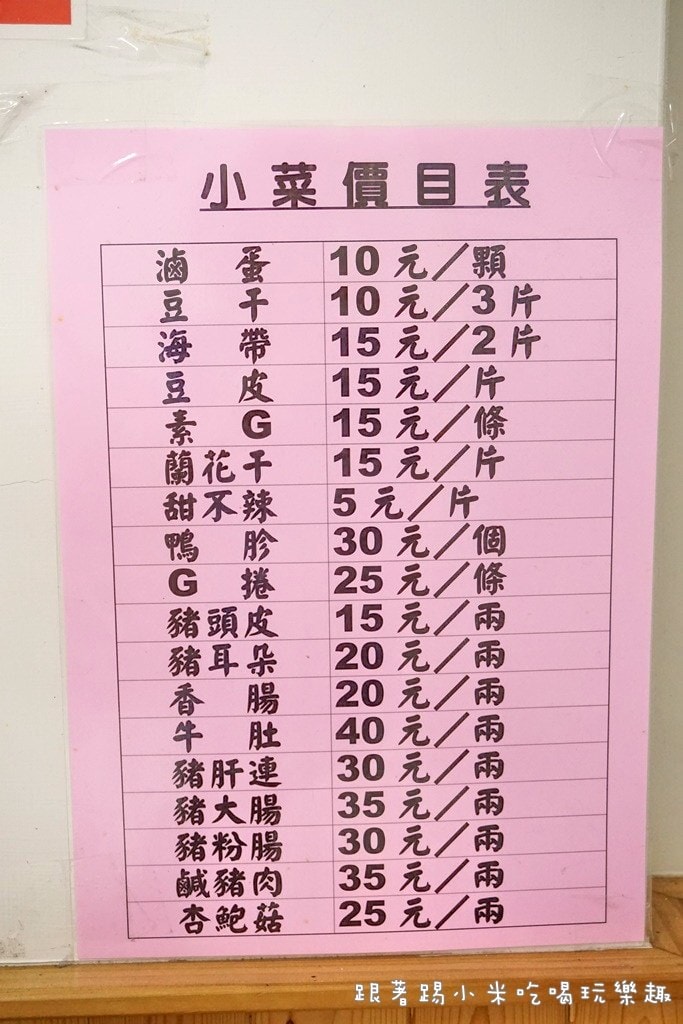 小菜價目表
滷蛋 10元／顆
豆干 10元／3片
海帶 15元／2片
豆皮 15元／片
素G 15元／條
蘭花干 15元／片
甜不辣 5元／片
鴨胗 30元／個
G捲 25元／條
豬頭皮 15元／兩
豬耳朵 20元／兩
香腸 20元／兩
牛肚 40元／兩
豬肝連 30元／兩
豬大腸 35元／兩
豬粉腸 30元／兩
鹹豬肉 35元／兩
杏鮑菇 25元／兩
跟著踢小米吃喝玩樂趣